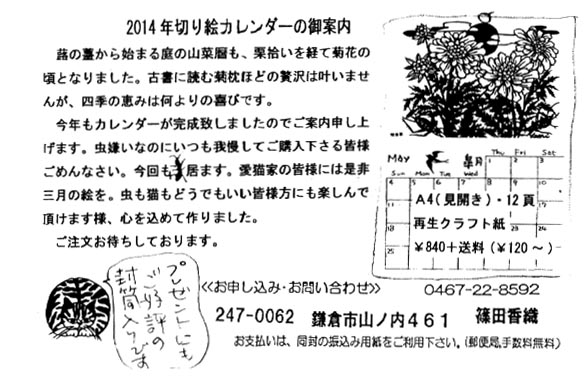 2014年切り絵カレンダーの御案内
蕗の薹から始まる庭の山菜暦も、栗拾いを経て菊花の
頃となりました。古書に読む菊枕ほどの贅沢は叶いませ
んが、四季の恵みは何よりの喜びです。
今年もカレンダーが完成致しましたのでご案内申し上
げます。虫嫌いなのにいつも我慢してご購入下さる皆様
ごめんなさい。今回も居ます。愛猫家の皆様には是非
三月の絵を。虫も猫もどうでもいい皆様方にも楽しんで
頂けます様、心を込めて作りました。
ご注文お待ちしております。
May 皐月
Sun Mon Tue Wed Thu Fri Sat
1 2 3
4 5 6 7 8 9 10
A4(見開き)・12頁
再生クラフト紙
¥840+送料(¥120~)
11
18
25
プレゼントにも
ご好評の
封筒入りです
<<お申し込み・お問い合わせ>> 0467-22-8592
247-0062 鎌倉市山ノ内461 篠田香織
お支払いは、同封の振込み用紙をご利用下さい。(郵便局,手数料無料)